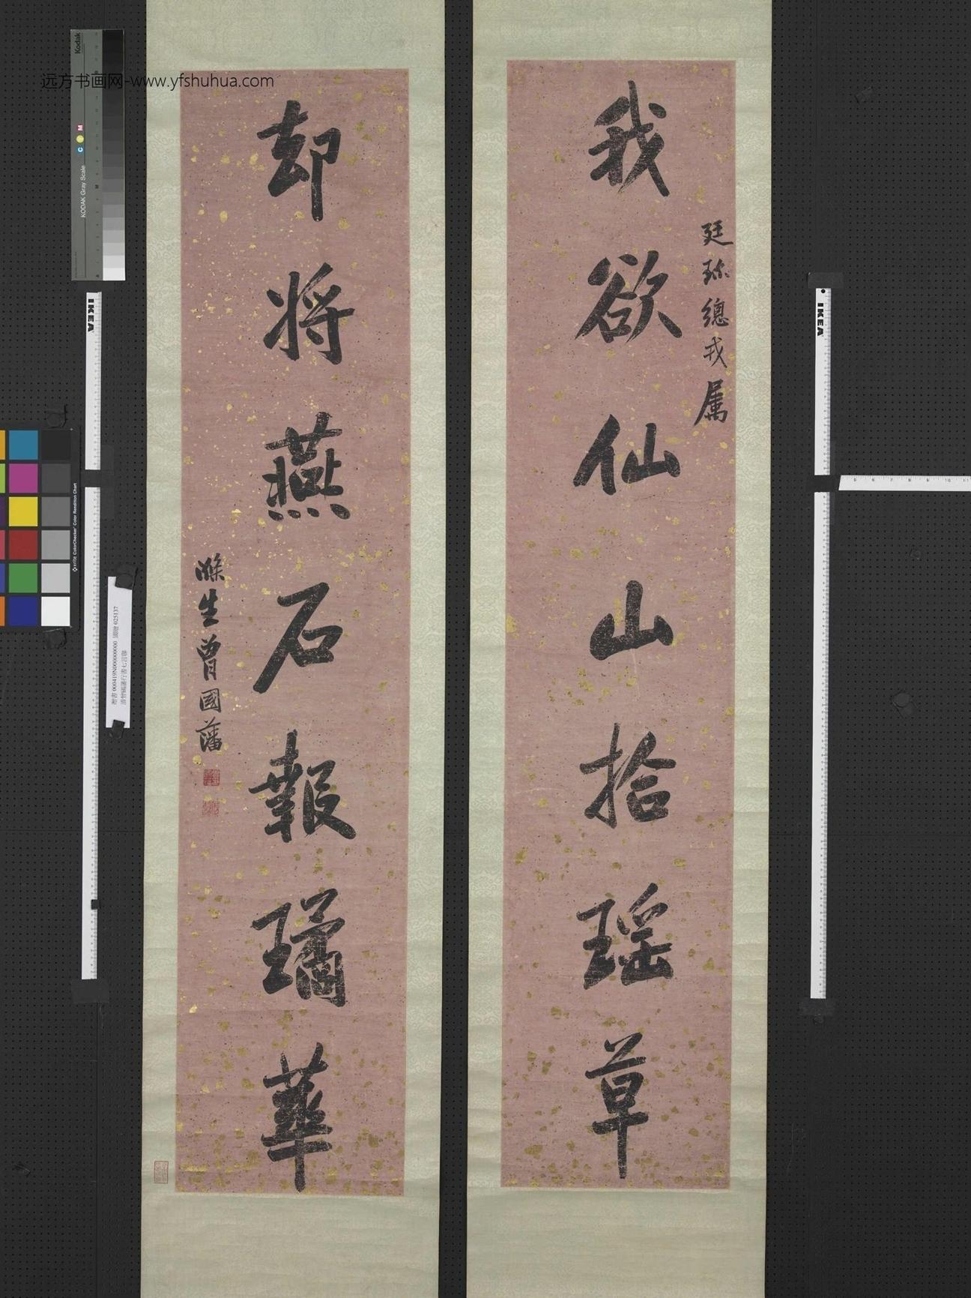 远方书画网-www.yfshuhua.com
我欲仙山拾瑶草
廷 總戎属
却将燕石報璚華
滌生曾國藩
Kodak
KODAK Gray Scale
C Y M
IKEA
IKEA